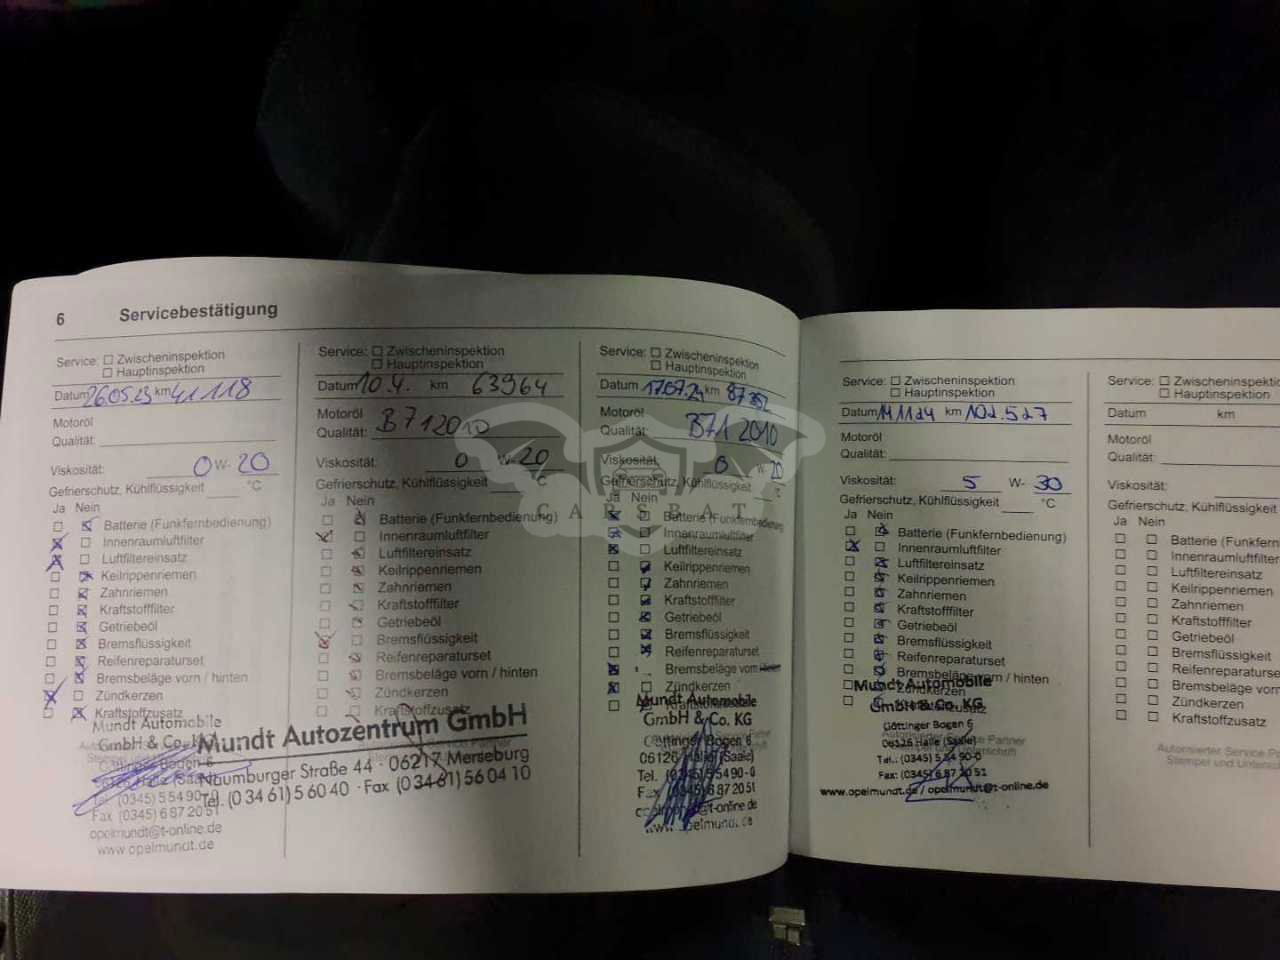 6 Servicebestätigung
Service: Zwischeninspektion
Hauptinspektion
Datum 26.05.23 km 41118
Motoröl
Qualität:
Viskosität: 0 W- 20
Gefrierschutz, Kühlflüssigkeit °C
Ja Nein
Batterie (Funkfernbedienung)
Innenraumluftfilter
Luftfiltereinsatz
Keilrippenriemen
Zahnriemen
Kraftstofffilter
Getriebeöl
Bremsflüssigkeit
Reifenreparaturset
Bremsbeläge vorn / hinten
Zündkerzen
Kraftstoffzusatz
Mundt Automobile
GmbH & Co. KG
Göttinger Bogen 6
06126 Halle (Saale)
Tel. (0345) 5 54 90-0
Fax (0345) 6 87 20 51
opelmundt@t-online.de
www.opelmundt.de
Service: Zwischeninspektion
Hauptinspektion
Datum 10.4. km 63964
Motoröl B71 2010
Qualität:
Viskosität: 0 W- 20
Gefrierschutz, Kühlflüssigkeit °C
Ja Nein
Batterie (Funkfernbedienung)
Innenraumluftfilter
Luftfiltereinsatz
Keilrippenriemen
Zahnriemen
Kraftstofffilter
Getriebeöl
Bremsflüssigkeit
Reifenreparaturset
Bremsbeläge vorn / hinten
Zündkerzen
Kraftstoffzusatz
Mundt Autozentrum GmbH
Naumburger Straße 44 · 06217 Merseburg
Tel. (0 34 61) 5 60 40 · Fax (0 34 61) 56 04 10
Service: Zwischeninspektion
Hauptinspektion
Datum 17.07.24 km 87352
Motoröl
Qualität: B71 2010
Viskosität: 0 W- 20
Gefrierschutz, Kühlflüssigkeit °C
Ja Nein
Batterie (Funkfernbedienung)
Innenraumluftfilter
Luftfiltereinsatz
Keilrippenriemen
Zahnriemen
Kraftstofffilter
Getriebeöl
Bremsflüssigkeit
Reifenreparaturset
Bremsbeläge vorn / hinten
Zündkerzen
Kraftstoffzusatz
Mundt Automobile
GmbH & Co. KG
Göttinger Bogen 6
06126 Halle (Saale)
Tel. (0345) 5 54 90-0
Fax (0345) 6 87 20 51
opelmundt@t-online.de
www.opelmundt.de
CARSBAT
Service: Zwischeninspektion
Hauptinspektion
Datum 11.11.24 km 102.527
Motoröl
Qualität:
Viskosität: 5 W- 30
Gefrierschutz, Kühlflüssigkeit °C
Ja Nein
Batterie (Funkfernbedienung)
Innenraumluftfilter
Luftfiltereinsatz
Keilrippenriemen
Zahnriemen
Kraftstofffilter
Getriebeöl
Bremsflüssigkeit
Reifenreparaturset
Bremsbeläge vorn / hinten
Zündkerzen
Kraftstoffzusatz
Mundt Automobile
GmbH & Co. KG
Göttinger Bogen 6
06126 Halle (Saale)
Tel.: (0345) 5 54 90-0
Fax: (0345) 6 87 20 51
www.opelmundt.de / opelmundt@t-online.de
Service: Zwischeninspekti
Hauptinspektion
Datum km
Motoröl
Qualität:
Viskosität:
Gefrierschutz, Kühlflüssigkeit
Ja Nein
Batterie (Funkfern
Innenraumluftfilter
Luftfiltereinsatz
Keilrippenriemen
Zahnriemen
Kraftstofffilter
Getriebeöl
Bremsflüssigkeit
Reifenreparaturse
Bremsbeläge vorn
Zündkerzen
Kraftstoffzusatz
Autorisierter Service Pa
Stempel und Untersch